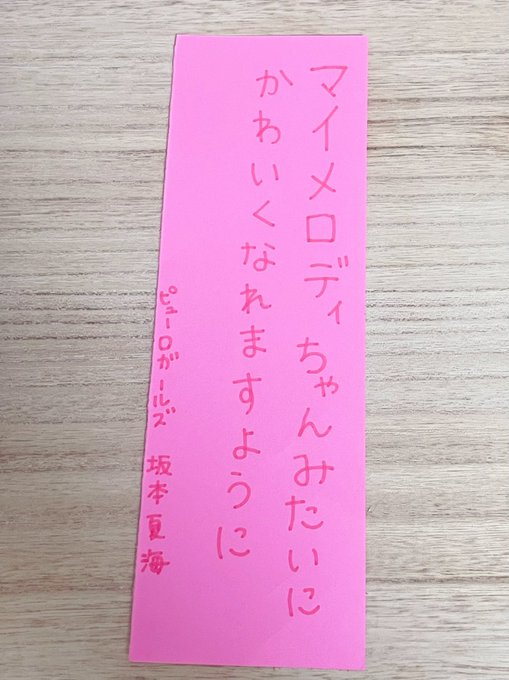 マイメロディちゃんみたいに
かわいくなれますように
ピューロガールズ 坂本夏海